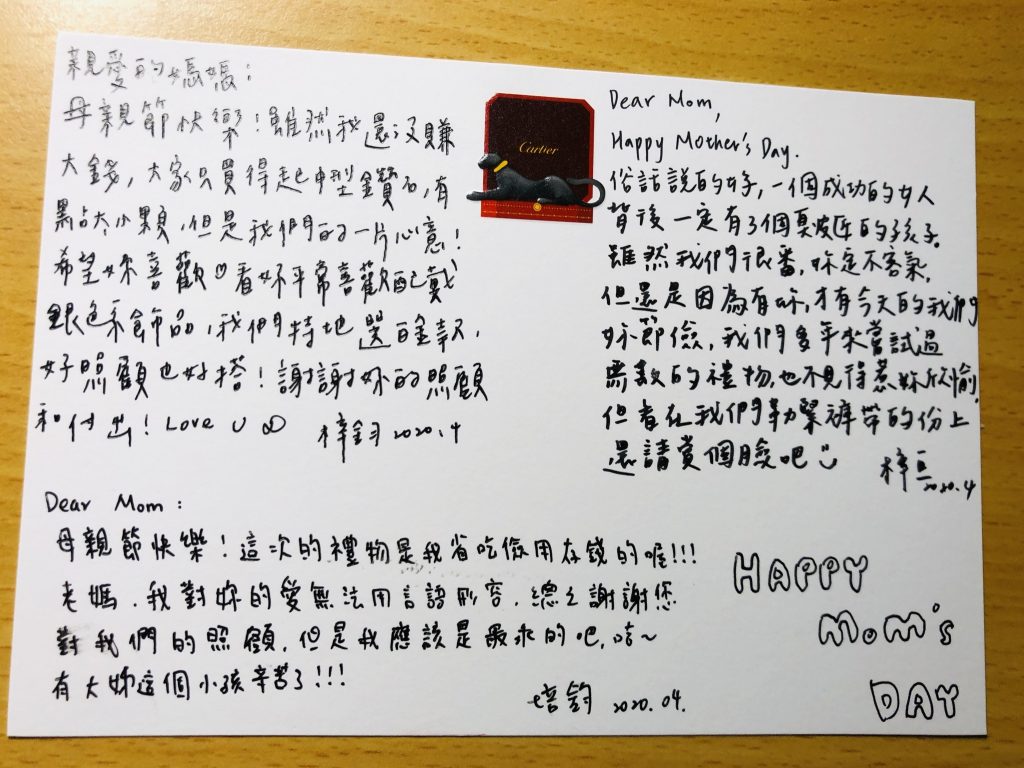 親愛的媽媽：
母親節快樂！雖然我還沒賺
大錢，大家只買得起中型鑽石，有
點大小顆，但是我們的一片心意！
希望妳喜歡♡看妳平常喜歡配戴
銀色系飾品，我們特地選白金款，
好照顧也好搭！謝謝妳的照顧
和付出！Love U ∞ 梓鈞 2020.4
Cartier
Dear Mom,
Happy Mother's Day.
俗話說的好，一個成功的女人
背後一定有3個臭皮匠的孩子。
雖然我們很番，妳定不客氣，
但還是因為有妳，才有今天的我們
妳節儉，我們多年來嘗試過
無數的禮物，也不見得惹妳欣愉，
但看在我們勒緊褲帶的份上
還請賞個臉吧 梓亘 2020.4
Dear Mom：
母親節快樂！這次的禮物是我省吃儉用存錢的喔!!!
老媽．我對妳的愛無法用言語形容．總之謝謝您
對我們的照顧．但是我應該是最乖的吧．咕~
有太妳這個小孩辛苦了!!!
培鈞 2020.04.
HAPPY
MOM's
DAY